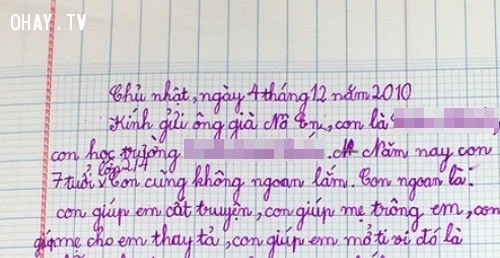 OHAY.TV
Chủ nhật, ngày 4 tháng 12 năm 2010
Kính gửi ông già Nô En, con là
con học trường . Năm nay con
lớp 2/7
7 tuổi. Con cũng không ngoan lắm. Con ngoan là:
con giúp em cất truyện, con giúp mẹ trông em, con
giúp mẹ cho em thay tả, con giúp em mở ti vi đó là